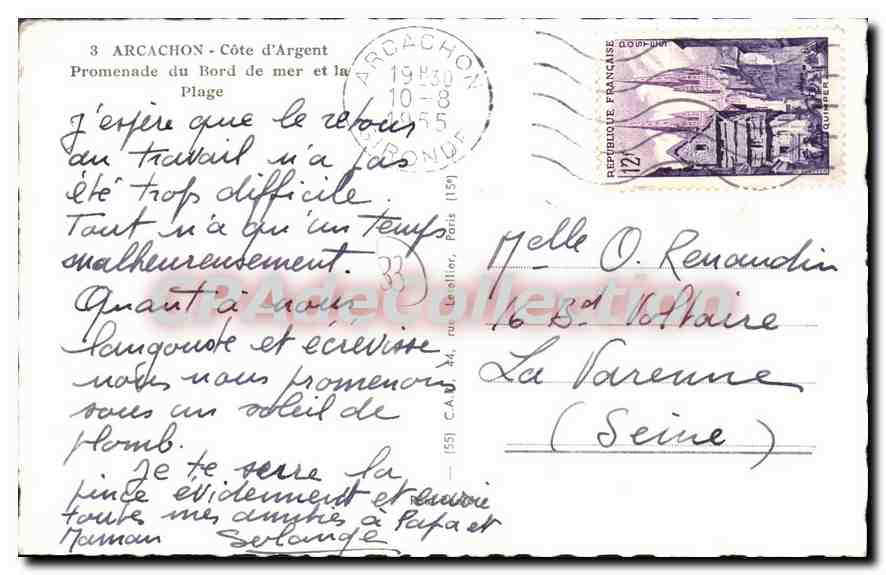 3 ARCACHON - Côte d'Argent
Promenade du Bord de mer et la
Plage
J'espère que le retour
au travail n'a pas
été trop difficile.
Tout n'a qu'un temps
malheureusement.
Quant à nous
langouste et écrevisse
nous nous promenons
sous un soleil de
plomb.
Je te serre la
pince évidemment et envoie
toutes mes amitiés à Papa et
Maman Solange
33
(55) C.A.P. 44, rue Letellier, Paris (15e)
ARCACHON
19H30
10-8
1955
GIRONDE
REPUBLIQUE FRANÇAISE
POSTES
12F
QUIMPER
Melle O. Renaudin
16 Bd Voltaire
La Varenne
(Seine)
CPAdeCollection